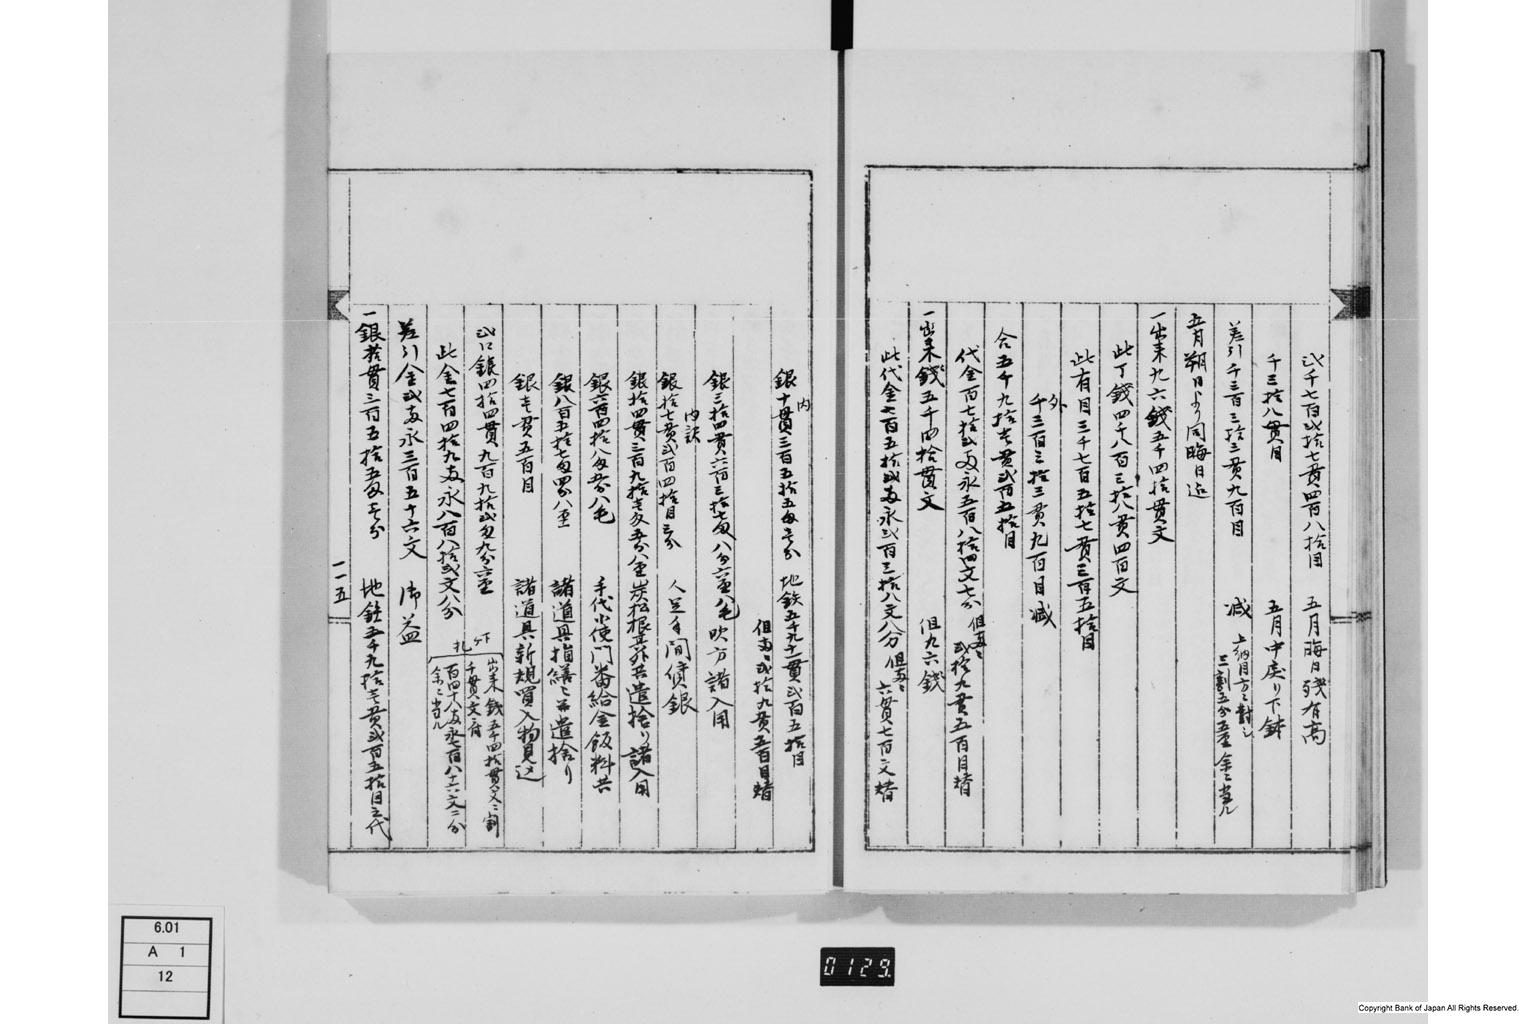 弐千七百弐拾七貫四百八拾目　五月晦日残有高
千三拾八貫目　五月中戻り下鉢
差引千三百三拾三貫九百目　減　上納月方ニ對シ三割五分五厘余ニ当ル
五月朔日より同晦日迄
一出来九六錢五千四拾貫文
此丁錢四千八百三拾八貫四百文
此有目三千七百五拾七貫三百五拾目
外
千三百三拾三貫九百目減
合五千九拾壱貫弐百五拾目
代金百七拾弐両永五百八拾四文七分　但両ニ弐拾九貫五百目替
一出来錢五千四拾貫文　但九六錢
此代金七百五拾弐両永弐百三拾八文八分　但両ニ六貫七百文替
内
銀十貫三百五拾五匁壱分　地鉄五千九十一貫弐百五拾目
但両ニ弐拾九貫五百目替
銀三拾四貫六百三拾七匁八分六厘八毛　吹方諸入用
内訳
銀拾七貫弐百四拾目三分　人足手間賃銀
銀拾四貫三百九拾壱匁五分八厘　炭松根其外共遣捨り諸入用
銀六百四拾八匁五分八毛　手代小使門番給金飯料共
銀八百五拾七匁四分八厘　諸道具損繕ニ而遣捨り
銀壱貫五百目　諸道具新規買入物見込
弐口銀四拾四貫九百九拾弐匁九分六厘
此金七百四拾九両永八百八拾弐文八分
下ケ札
出来錢五千四拾貫文ニ割
千貫文ニ付
百四十八両永七百八十六文二分
余ニ当ル
差引金弐両永三百五十六文　御益
一銀拾貫三百五拾五匁壱分　地鉄五千九拾壱貫弐百五拾目之代
一一五
6.01
A 1
12
0129
Copyright Bank of Japan All Rights Reserved.